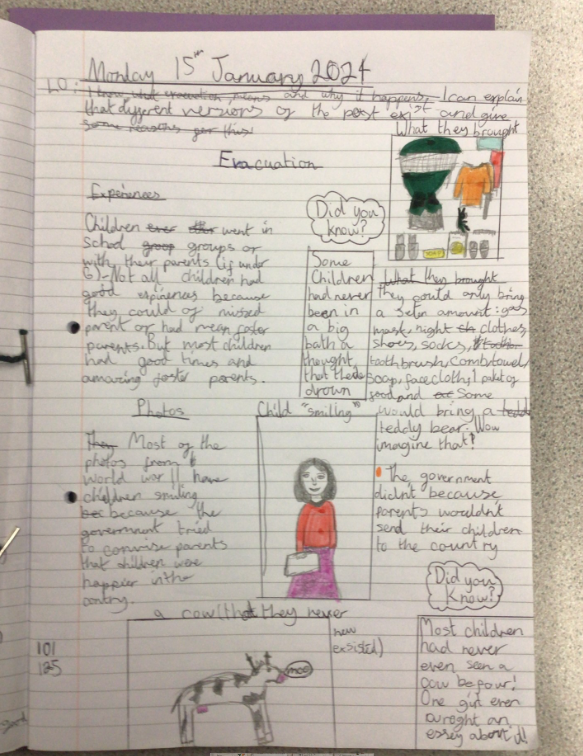 Monday 15th January 2024
LO: I know what evacuation means and why it happens. I can explain
that different versions of the past exist and give
some reasons for this
What they brought
Evacuation
Experiences
Children ever went in
school groop groups or
with their parents (if under
6)-Not all children had
good expiriences because
they could of missed
parent or had mean foter
parents. But most children
had good times and
amazing foster parents.
Did you
know?
Some
Children
had never
been in
a big
bath a
thought
that the
drown
What they brought
They could only bring
a setn amount: gas
mask, night clothes,
shoes, socks,
toothbrush, comb, towel,
soap, face cloth, 1 pakit of
food and Some
would bring a tedd
teddy bear. Wow
imagine that!
The government
didn't because
parents wouldn't
send their children
to the country
Photos
They Most of the
photos from
world war II have
children smiling
bec because the
goverment tried
to convise parents
that children were
happier in the
contry.
Child "smiling"
Did you
Know?
Most children
had never
even seen a
cow before!
One girl even
an
essey about it!
a cow (that they never
new
exsisted)
moo
101
125